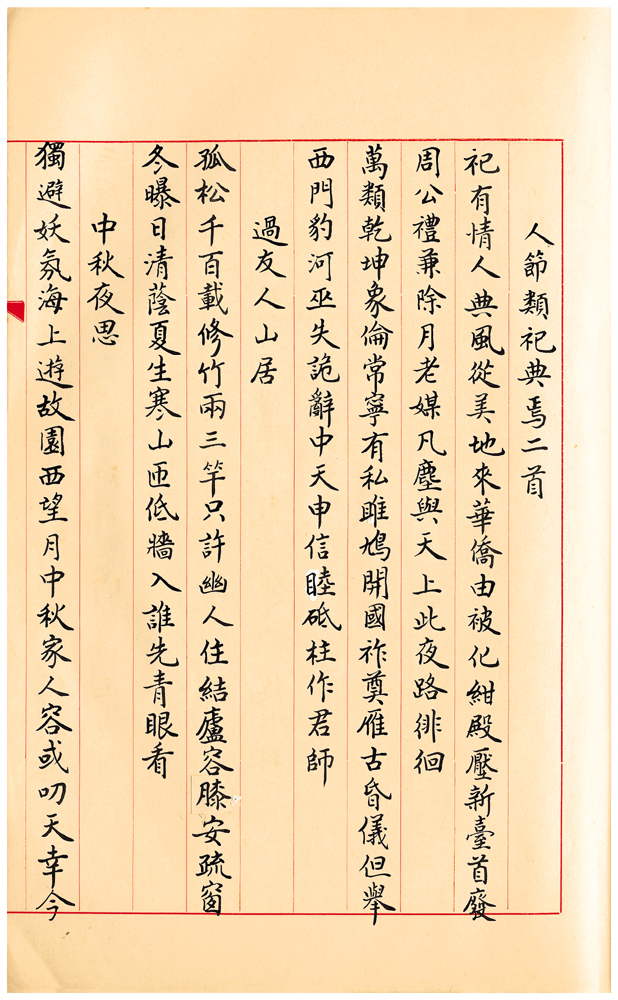 人節類祀典焉二首
祀有情人典風從美地來華僑由被化紺殿壓新臺首廢
周公禮兼除月老媒凡塵與天上此夜路徘徊
萬類乾坤象倫常寧有私雎鳩開國祚奠雁古昏儀但舉
西門豹河巫失詭辭中天申信睦砥柱作君師
過友人山居
孤松千百載修竹兩三竿只許幽人住結廬容膝安疏窗
冬曝日清蔭夏生寒山迊低牆入誰先青眼看
中秋夜思
獨避妖氛海上遊故園西望月中秋家人容或叨天幸今